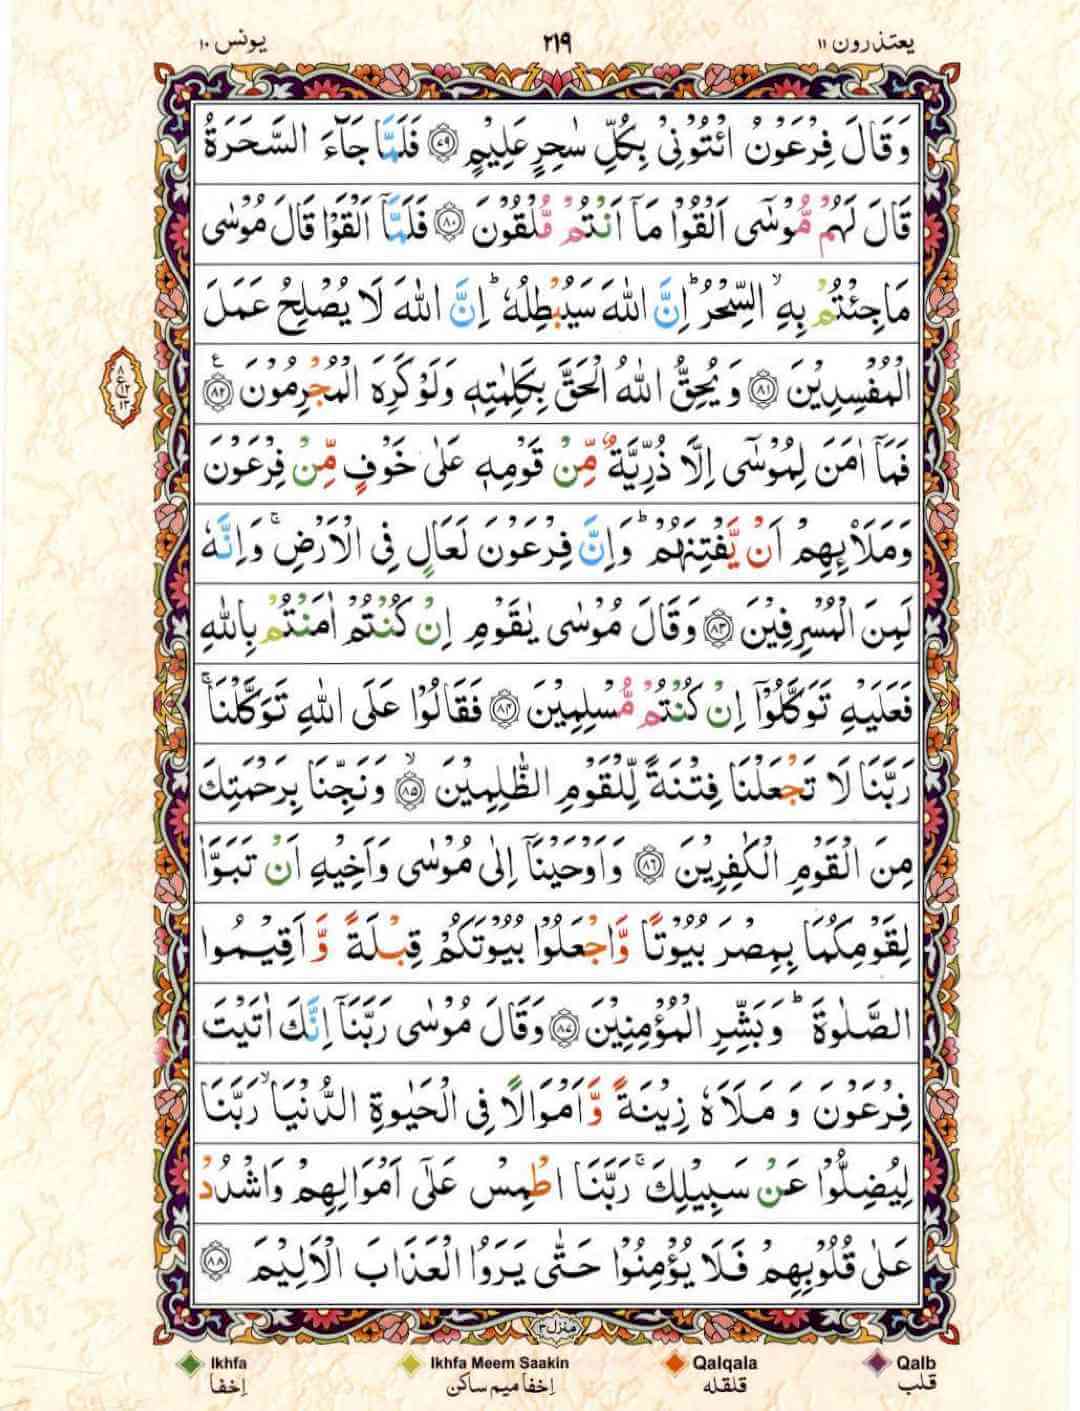 يعتذرون ١١ ٢١٩ يونس ١٠
وَقَالَ فِرْعَوْنُ ائْتُوْنِیْ بِكُلِّ سٰحِرٍ عَلِیْمٍ ﴿٧٩﴾ فَلَمَّا جَآءَ السَّحَرَةُ
قَالَ لَهُمْ مُّوْسٰۤی اَلْقُوْا مَاۤ اَنْتُمْ مُّلْقُوْنَ ﴿٨٠﴾ فَلَمَّاۤ اَلْقَوْا قَالَ مُوْسٰی
مَا جِئْتُمْ بِهِ ۙ السِّحْرُ ؕ اِنَّ اللّٰهَ سَیُبْطِلُهٗ ؕ اِنَّ اللّٰهَ لَا یُصْلِحُ عَمَلَ
الْمُفْسِدِیْنَ ﴿٨١﴾ وَیُحِقُّ اللّٰهُ الْحَقَّ بِكَلِمٰتِهٖ وَلَوْ كَرِهَ الْمُجْرِمُوْنَ ﴿٨٢﴾ ع
٨ ع ١٢ ١٣
فَمَاۤ اٰمَنَ لِمُوْسٰۤی اِلَّا ذُرِّیَّةٌ مِّنْ قَوْمِهٖ عَلٰی خَوْفٍ مِّنْ فِرْعَوْنَ
وَمَلَا۟ىِٕهِمْ اَنْ یَّفْتِنَهُمْ ؕ وَاِنَّ فِرْعَوْنَ لَعَالٍ فِی الْاَرْضِ ۚ وَاِنَّهٗ
لَمِنَ الْمُسْرِفِیْنَ ﴿٨٣﴾ وَقَالَ مُوْسٰی یٰقَوْمِ اِنْ كُنْتُمْ اٰمَنْتُمْ بِاللّٰهِ
فَعَلَیْهِ تَوَكَّلُوْۤا اِنْ كُنْتُمْ مُّسْلِمِیْنَ ﴿٨٤﴾ فَقَالُوْا عَلَی اللّٰهِ تَوَكَّلْنَا ۚ
رَبَّنَا لَا تَجْعَلْنَا فِتْنَةً لِّلْقَوْمِ الظّٰلِمِیْنَ ﴿٨٥﴾ ۙ وَنَجِّنَا بِرَحْمَتِكَ
مِنَ الْقَوْمِ الْكٰفِرِیْنَ ﴿٨٦﴾ وَاَوْحَیْنَاۤ اِلٰی مُوْسٰی وَاَخِیْهِ اَنْ تَبَوَّاٰ
لِقَوْمِكُمَا بِمِصْرَ بُیُوْتًا وَّاجْعَلُوْا بُیُوْتَكُمْ قِبْلَةً وَّاَقِیْمُوا
الصَّلٰوةَ ؕ وَبَشِّرِ الْمُؤْمِنِیْنَ ﴿٨٧﴾ وَقَالَ مُوْسٰی رَبَّنَاۤ اِنَّكَ اٰتَیْتَ
فِرْعَوْنَ وَ مَلَاَهٗ زِیْنَةً وَّاَمْوَالًا فِی الْحَیٰوةِ الدُّنْیَا ۙ رَبَّنَا
لِیُضِلُّوْا عَنْ سَبِیْلِكَ ۚ رَبَّنَا اطْمِسْ عَلٰۤی اَمْوَالِهِمْ وَاشْدُدْ
عَلٰی قُلُوْبِهِمْ فَلَا یُؤْمِنُوْا حَتّٰی یَرَوُا الْعَذَابَ الْاَلِیْمَ ﴿٨٨﴾
منزل ٣
Ikhfa Ikhfa Meem Saakin Qalqala Qalb
اِخفا اِخفا میم ساکن قلقله قلب